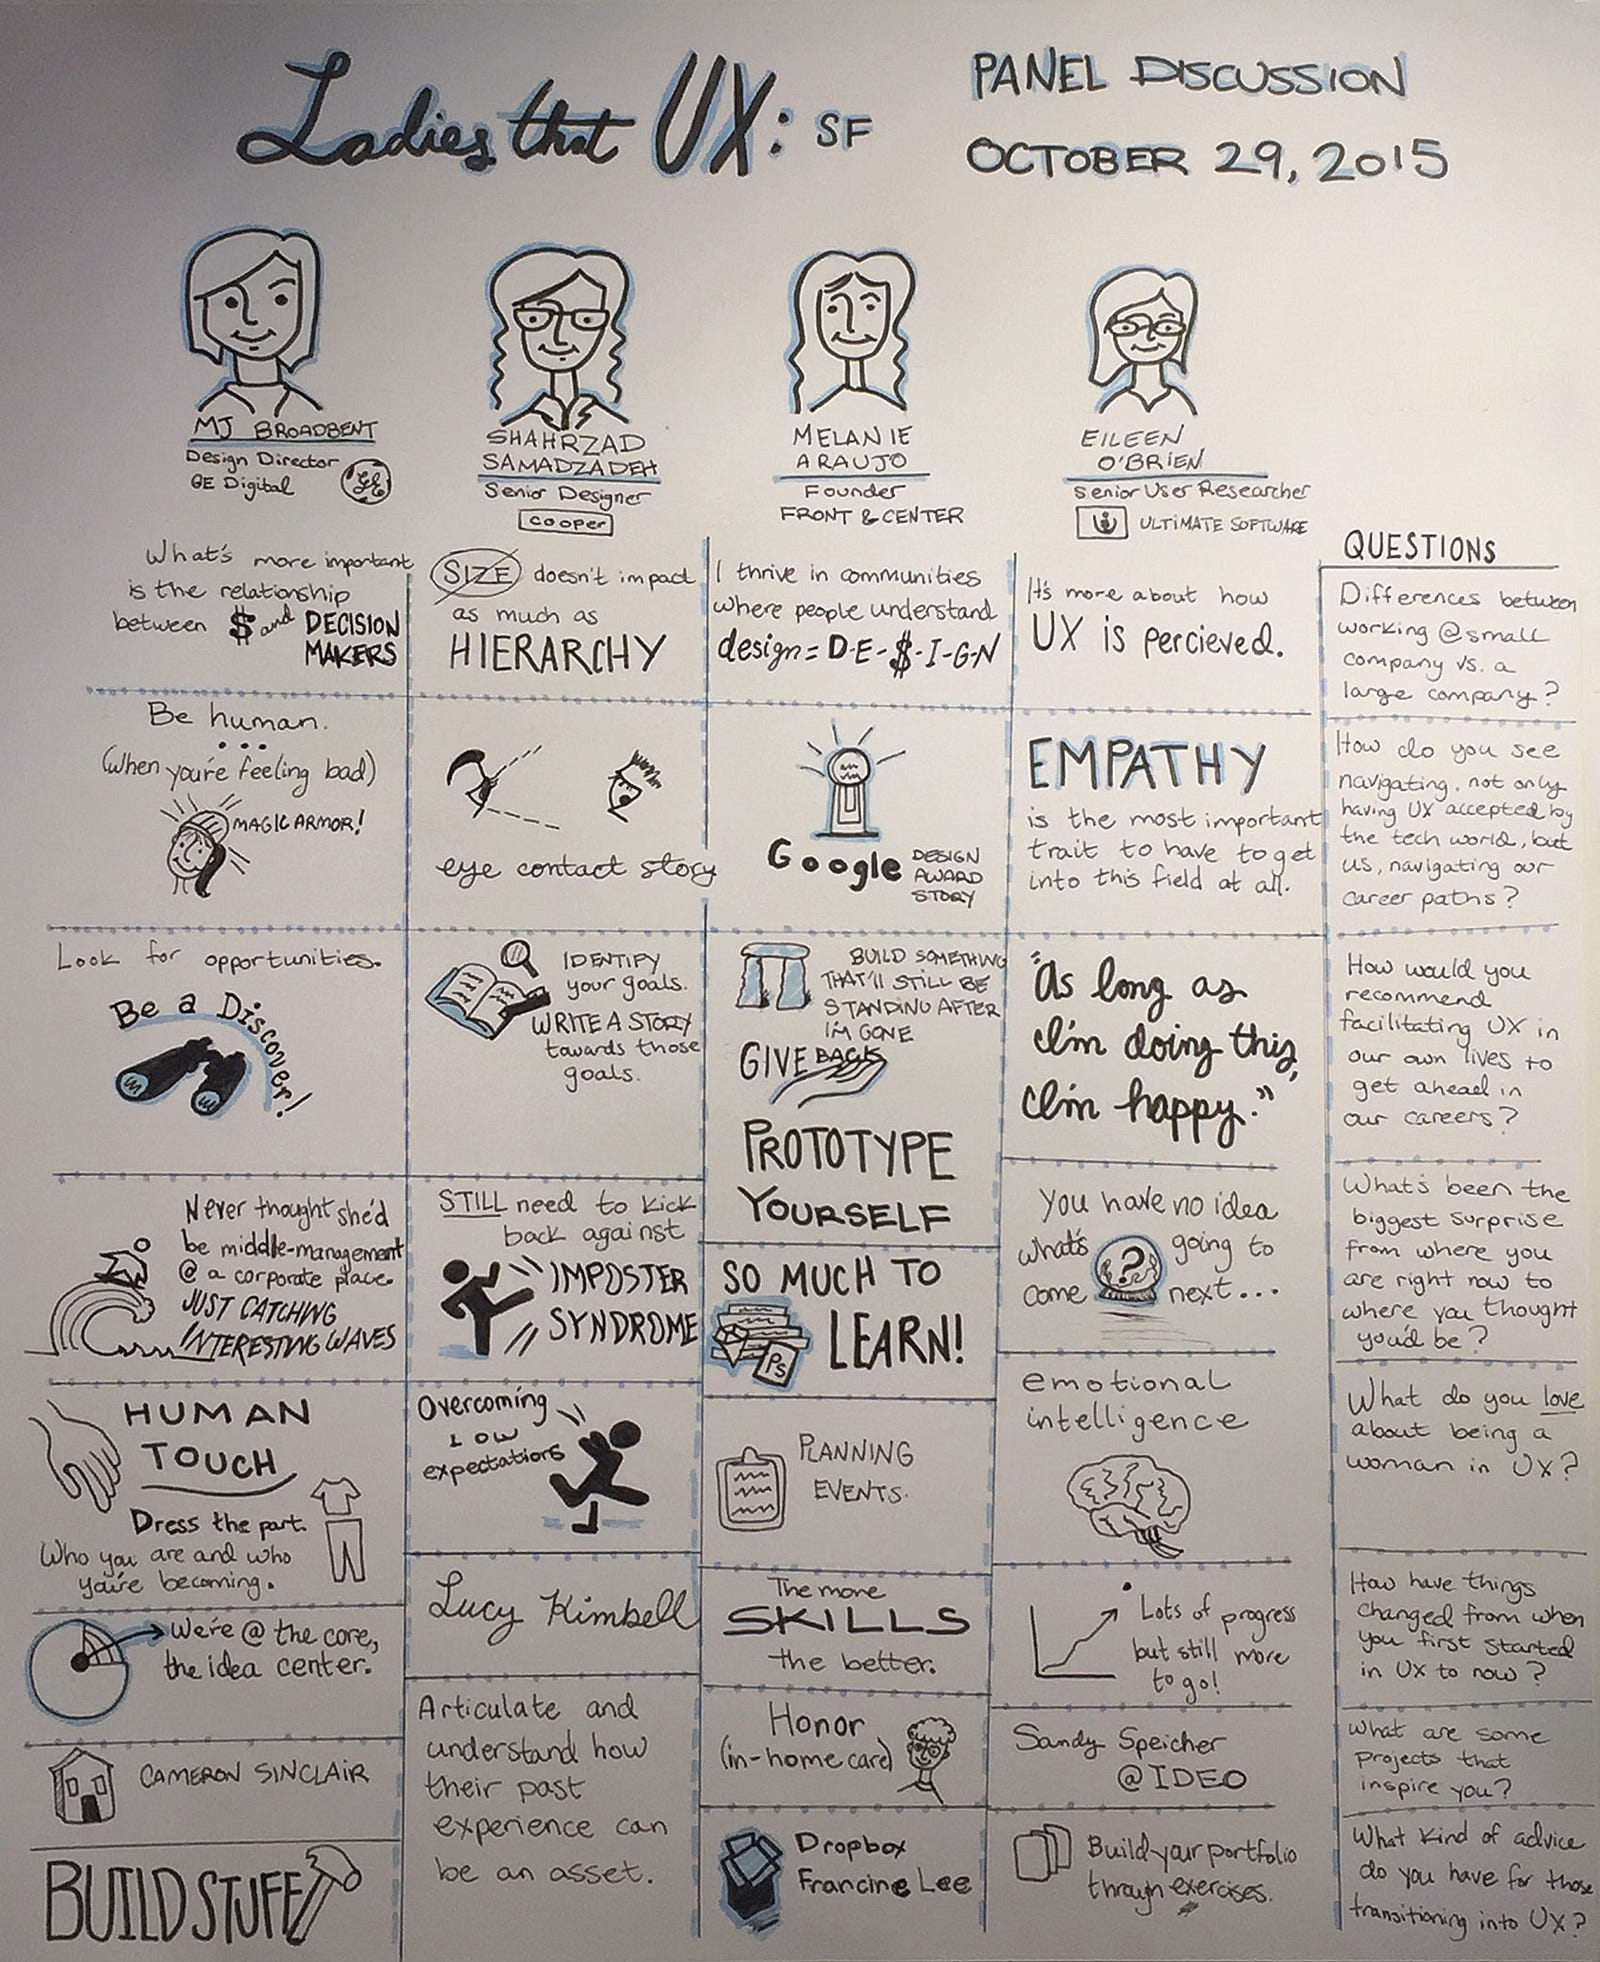 Ladies that UX: SF
PANEL DISCUSSION
OCTOBER 29, 2015
MJ BROADBENT
Design Director
GE Digital
GE
SHAHRZAD
SAMADZADEH
Senior Designer
cooper
MELANIE
ARAUJO
Founder
FRONT & CENTER
EILEEN
O'BRIEN
Senior User Researcher
ULTIMATE SOFTWARE
QUESTIONS
What's more important
is the relationship
between $ and DECISION
MAKERS
SIZE doesn't impact
as much as
HIERARCHY
I thrive in communities
where people understand
design = D-E-$-I-G-N
It's more about how
UX is percieved.
Differences between
working @ small
company vs. a
large company?
Be human.
(when you're feeling bad)
MAGIC ARMOR!
eye contact story
Google DESIGN
AWARD
STORY
EMPATHY
is the most important
trait to have to get
into this field at all.
How do you see
navigating, not only
having UX accepted by
the tech world, but
us, navigating our
career paths?
Look for opportunities.
Be a Discover!
IDENTIFY
your goals.
WRITE A STORY
towards those
goals.
BUILD SOMETHING
THAT'LL STILL BE
STANDING AFTER
I'M GONE
GIVE BACK
PROTOTYPE
YOURSELF
"As long as
I'm doing this,
I'm happy."
How would you
recommend
facilitating UX in
our own lives to
get ahead in
our careers?
Never thought she'd
be middle-management
@ a corporate place.
JUST CATCHING
INTERESTING WAVES
STILL need to kick
back against
IMPOSTER
SYNDROME
SO MUCH TO
LEARN!
Ps
You have no idea
what's going to
come ? next...
What's been the
biggest surprise
from where you
are right now to
where you thought
you'd be?
HUMAN
TOUCH
Dress the part.
Who you are and who
you're becoming.
Overcoming
LOW
expectations
PLANNING
EVENTS.
emotional
intelligence
What do you love
about being a
woman in UX?
We're @ the core,
the idea center.
Lucy Kimbell
The more
SKILLS
the better.
Lots of progress
but still more
to go!
How have things
changed from when
you first started
in UX to now?
CAMERON SINCLAIR
Articulate and
understand how
their past
experience can
be an asset.
Honor
(in-home care)
Sandy Speicher
@ IDEO
What are some
projects that
inspire you?
BUILD STUFF
Dropbox
Francine Lee
Build your portfolio
through exercises.
What kind of advice
do you have for those
transitioning into UX?